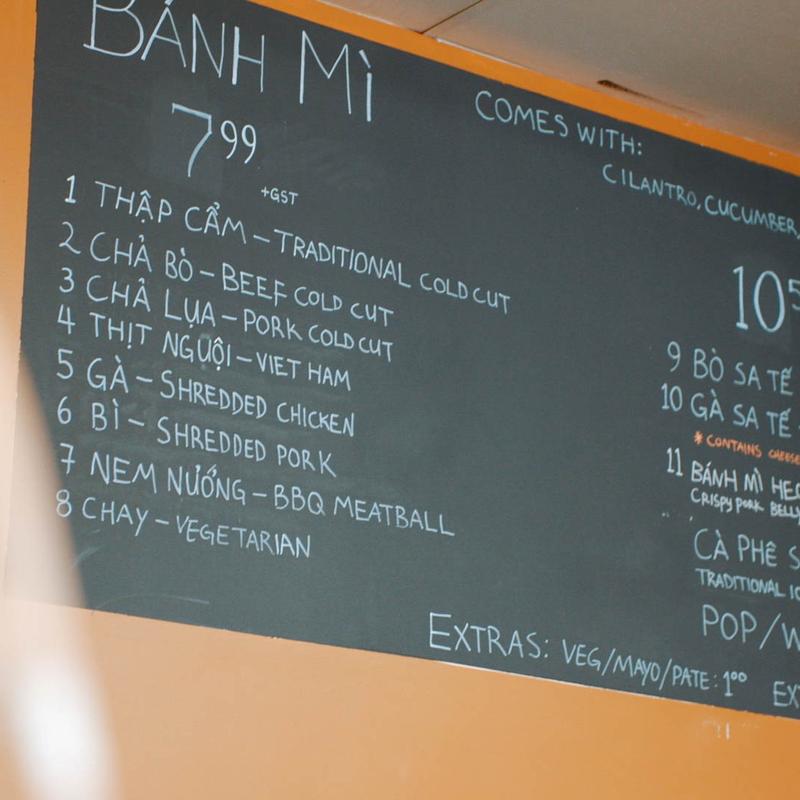 BÁNH MÌ
7.99
+GST
1 THẬP CẨM – TRADITIONAL COLD CUT
2 CHẢ BÒ – BEEF COLD CUT
3 CHẢ LỤA – PORK COLD CUT
4 THỊT NGUỘI – VIET HAM
5 GÀ – SHREDDED CHICKEN
6 BÌ – SHREDDED PORK
7 NEM NƯỚNG – BBQ MEATBALL
8 CHAY – VEGETARIAN
COMES WITH:
CILANTRO, CUCUMBER,
10
9 BÒ SA TẾ
10 GÀ SA TẾ
* CONTAINS CHEESE
11 BÁNH MÌ
CRISPY PORK BELLY
CÀ PHÊ
TRADITIONAL
POP/
EXTRAS: VEG/MAYO/PATE: 1.00